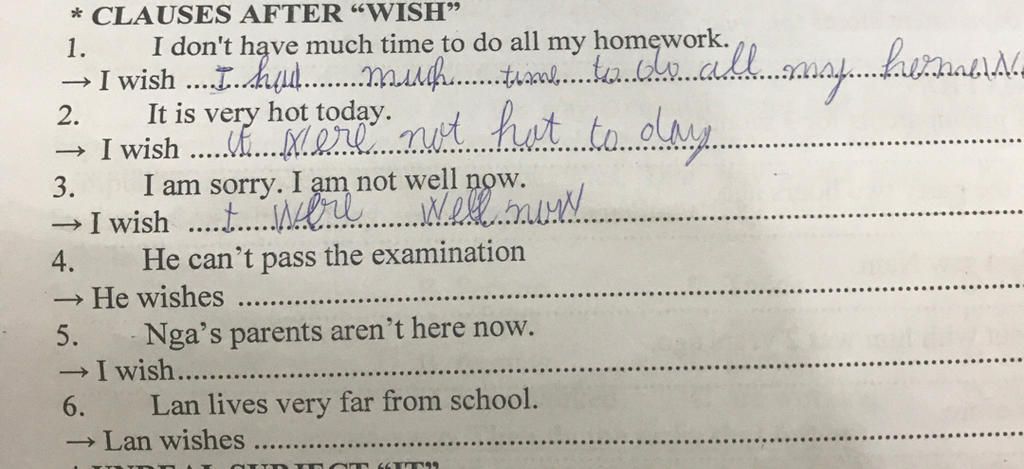 * CLAUSES AFTER “WISH”
1. I don't have much time to do all my homework.
→ I wish ....I had much time to do all my homew
2. It is very hot today.
→ I wish .....it were not hot to day
3. I am sorry. I am not well now.
→ I wish ....I were well now
4. He can’t pass the examination
→ He wishes ....................
5. Nga’s parents aren’t here now.
→ I wish....................
6. Lan lives very far from school.
→ Lan wishes ....................
* UNREAL SUBJECT “IT”